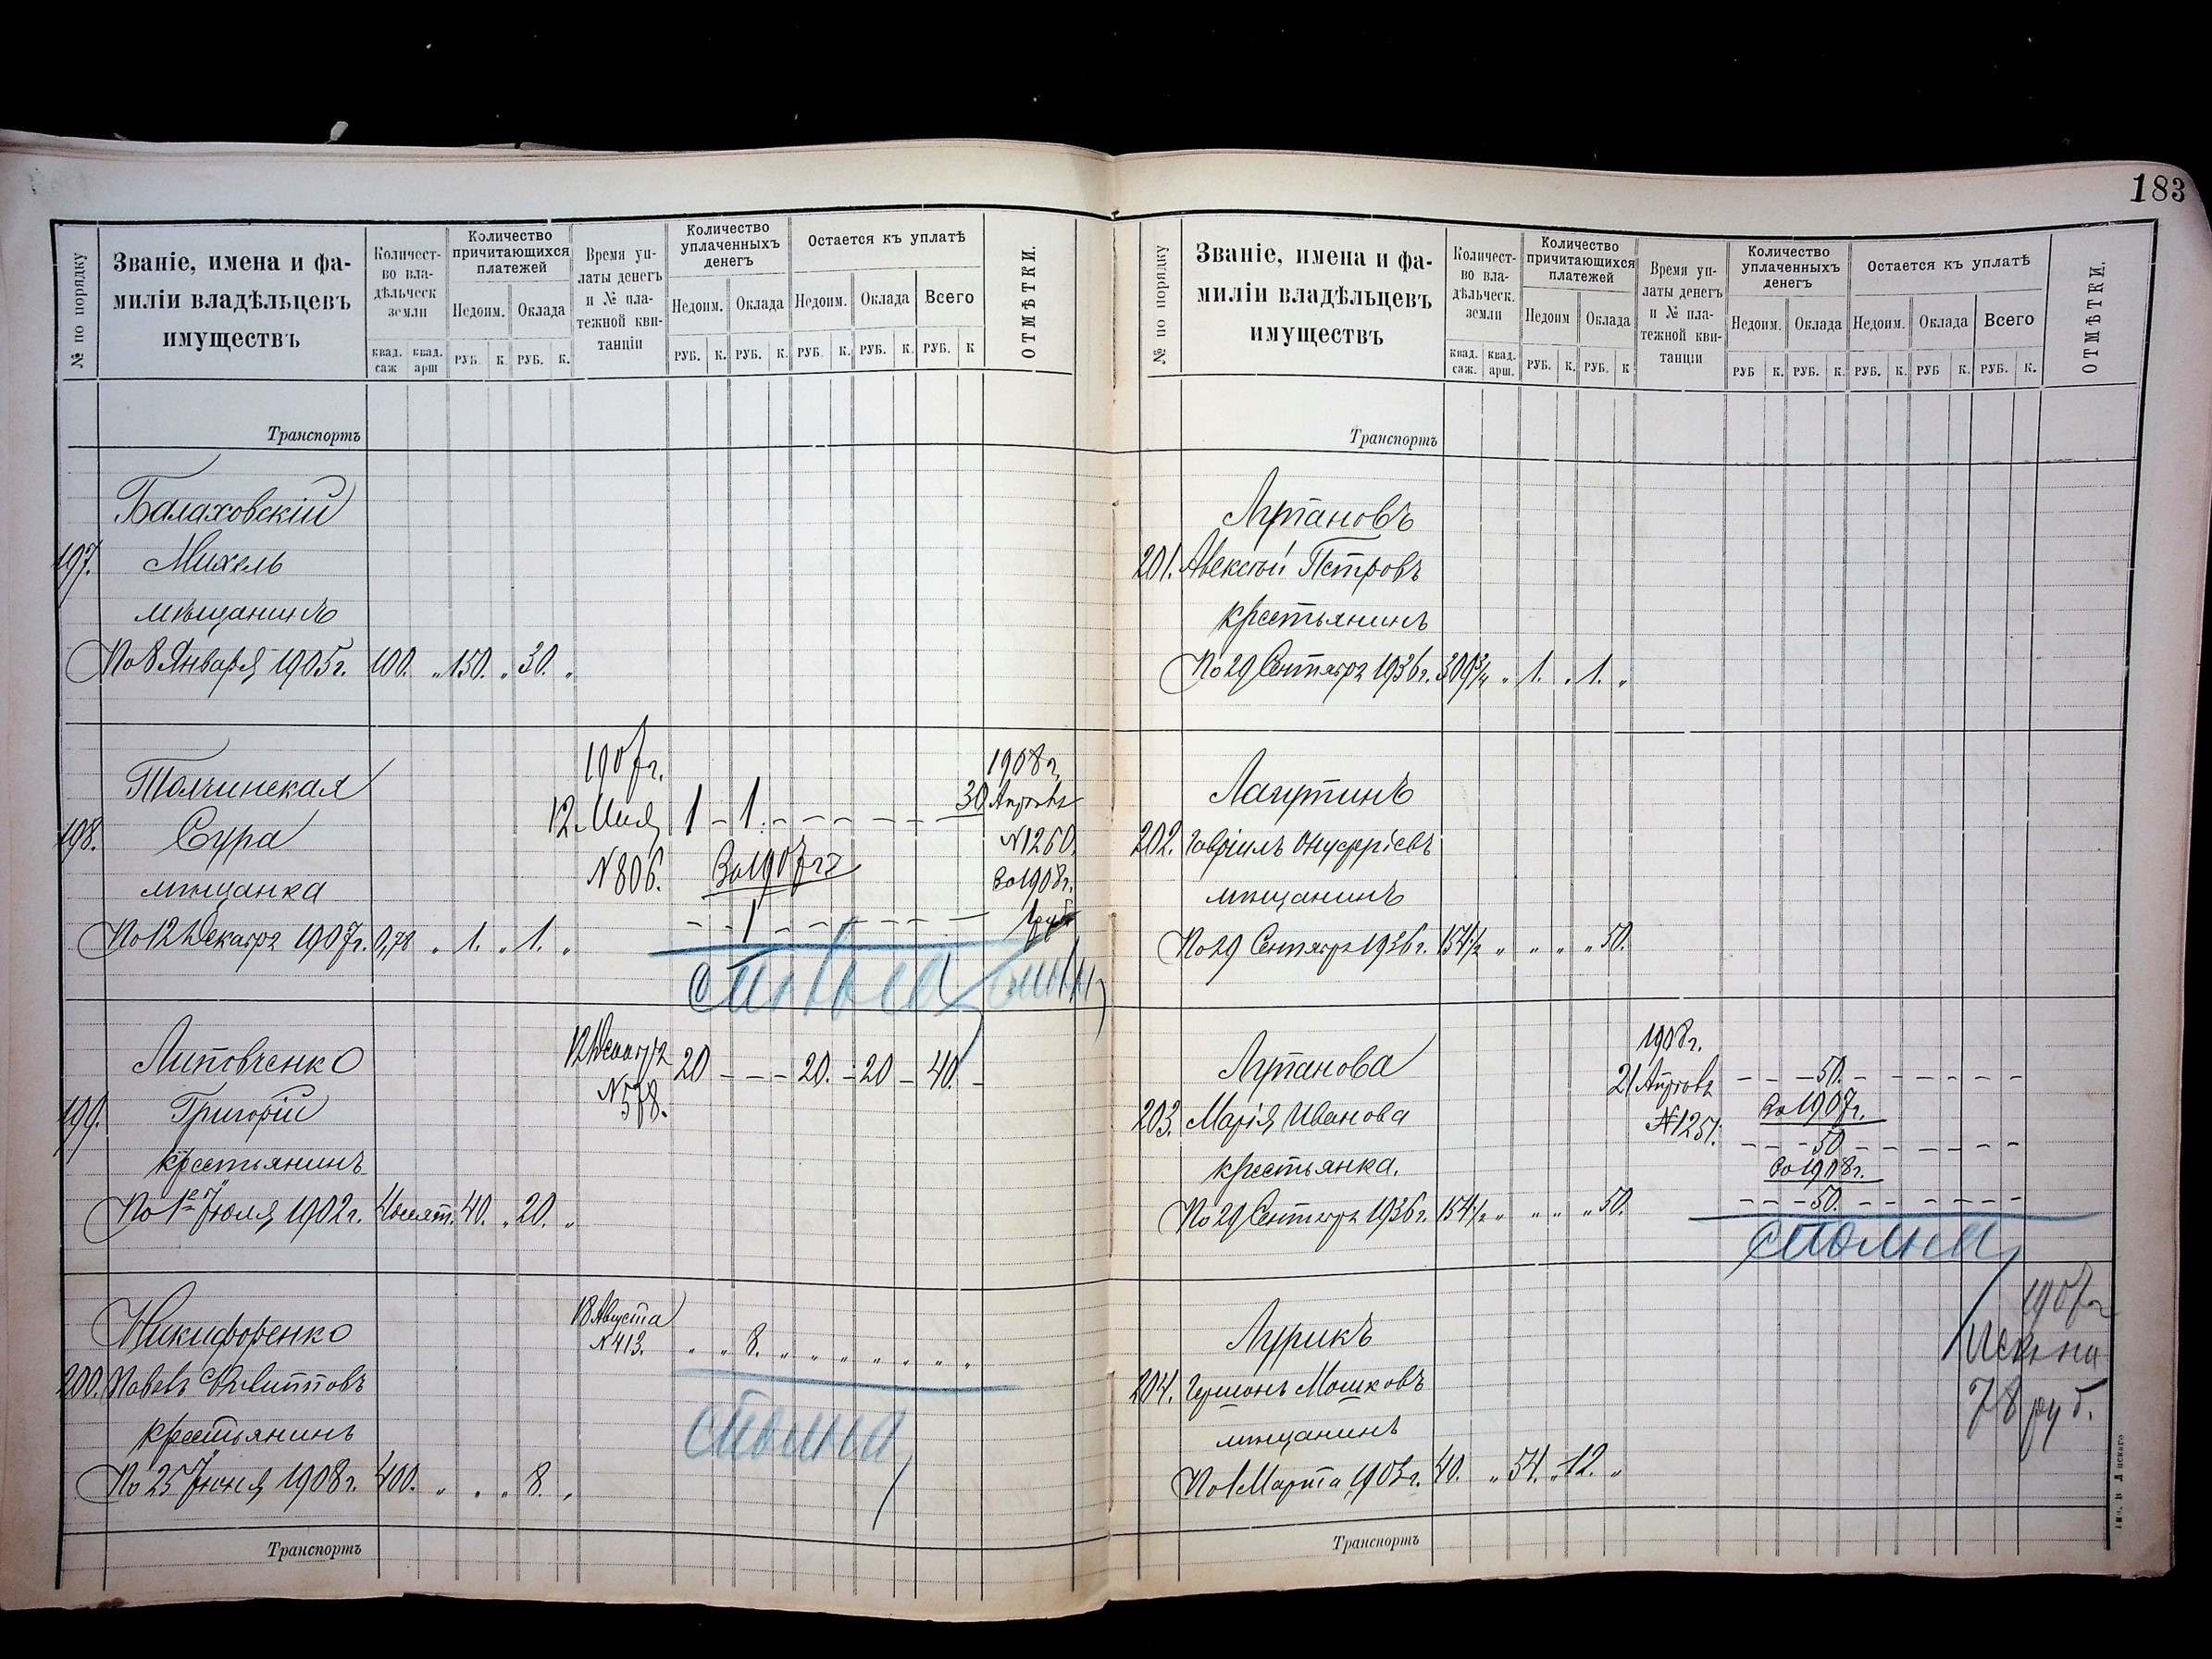 183
№ по порядку
Званіе, имена и фа-
миліи владѣльцевъ
имуществъ
Количест-
во вла-
дѣльческ
земли
квад. саж
квад. арш
Количество
причитающихся
платежей
Недоим.
Оклада
РУБ. К. РУБ. К.
Время уп-
латы денегъ
и № пла-
тежной кви-
танціи
Количество
уплаченныхъ
денегъ
Недоим. Оклада
РУБ. К. РУБ. К.
Остается къ уплатѣ
Недоим. Оклада Всего
РУБ. К. РУБ. К. РУБ. К
ОТМѢТКИ.
Транспортъ
Балаховскій
197. Михель
мѣщанинъ
По 8 Января 1905 г. 100. „ 150. „ 30. „
Толчинская
198. Сура
мѣщанка
По 12 Декабря 1907 г. 0,78 „ 1. „ 1. „
1907 г.
12. Мая 1 - 1.
N 806. За 1907 г.
- 1 -
1908 г.
30
N 1260.
За 1908 г.
1 руб
Липовченко
199. Григорій
крестьянинъ
По 1 Іюля 1902 г. 4 десят. 40. „ 20. „
N 578.
20 - - - 20. - 20 - 40. -
Никифоренко
200. Павелъ Филипповъ
крестьянинъ
По 25 Іюня 1908 г. 400. „ „ „ 8. „
18 Августа
N 413. „ „ 8. „ „ „ „ „ „ „
Транспортъ
№ по порядку
Званіе, имена и фа-
миліи владѣльцевъ
имуществъ
Количест-
во вла-
дѣльческ.
земли
квад. саж.
квад. арш.
Количество
причитающихся
платежей
Недоим Оклада
РУБ. К. РУБ. К
Время уп-
латы денегъ
и № пла-
тежной кви-
танціи
Количество
уплаченныхъ
денегъ
Недоим. Оклада
РУБ К. РУБ. К.
Остается къ уплатѣ
Недоим. Оклада Всего
РУБ. К. РУБ К. РУБ. К.
ОТМѢТКИ.
Транспортъ
Лупановъ
201. Алексѣй Петровъ
крестьянинъ
По 29 Сентября 1936 г. 309¾ „ 1. „ 1. „
Лагутинъ
202. Гавріилъ Онуфріевъ
мѣщанинъ
По 29 Сентября 1936 г. 154½ „ „ „ „ 50.
Лупанова
203. Марія Иванова
крестьянка.
По 29 Сентября 1936 г. 154½ „ „ „ „ 50.
1908 г.
21 - - - 50. - - - - - -
N 1251. За 1907 г.
- - - 50 - - - -
За 1908 г.
- - - 50. - - - - - -
Лурикъ
204. Гершонъ Мошковъ
мѣщанинъ
По 1 Марта 1903 г. 40. „ 54. „ 12. „
1907 г
на
78 руб.
Транспортъ